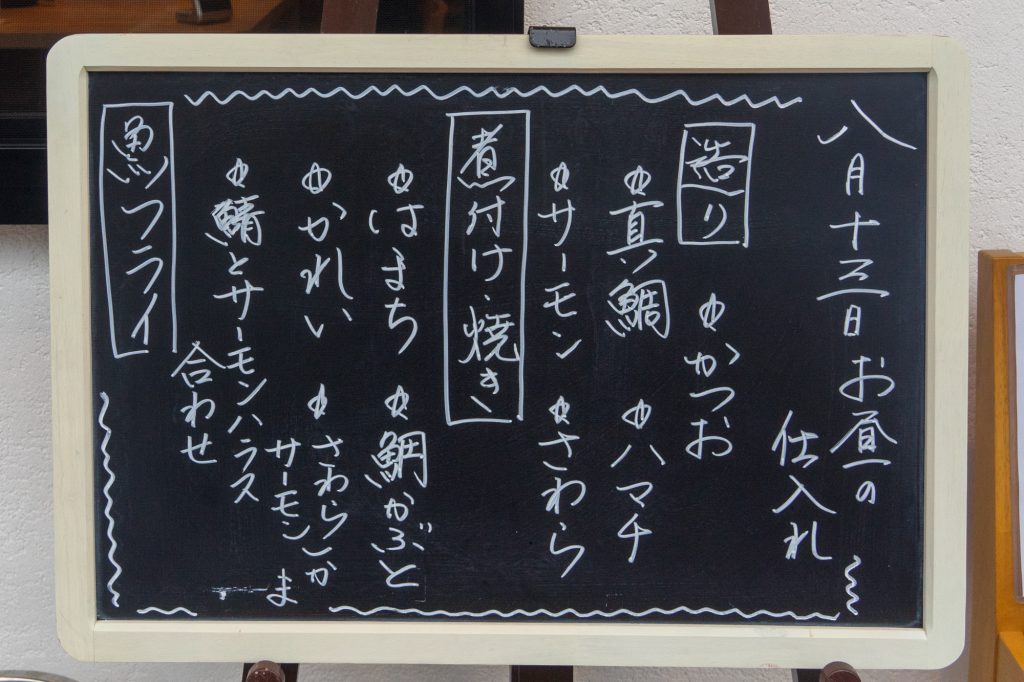 八月十三日お昼の
仕入れ
造り
かつお
真鯛 ハマチ
サーモン さわら
煮付け・焼き
はまち 鯛かぶと
かれい さわら
サーモン
鯖とサーモンハラス
合わせ
魚フライ